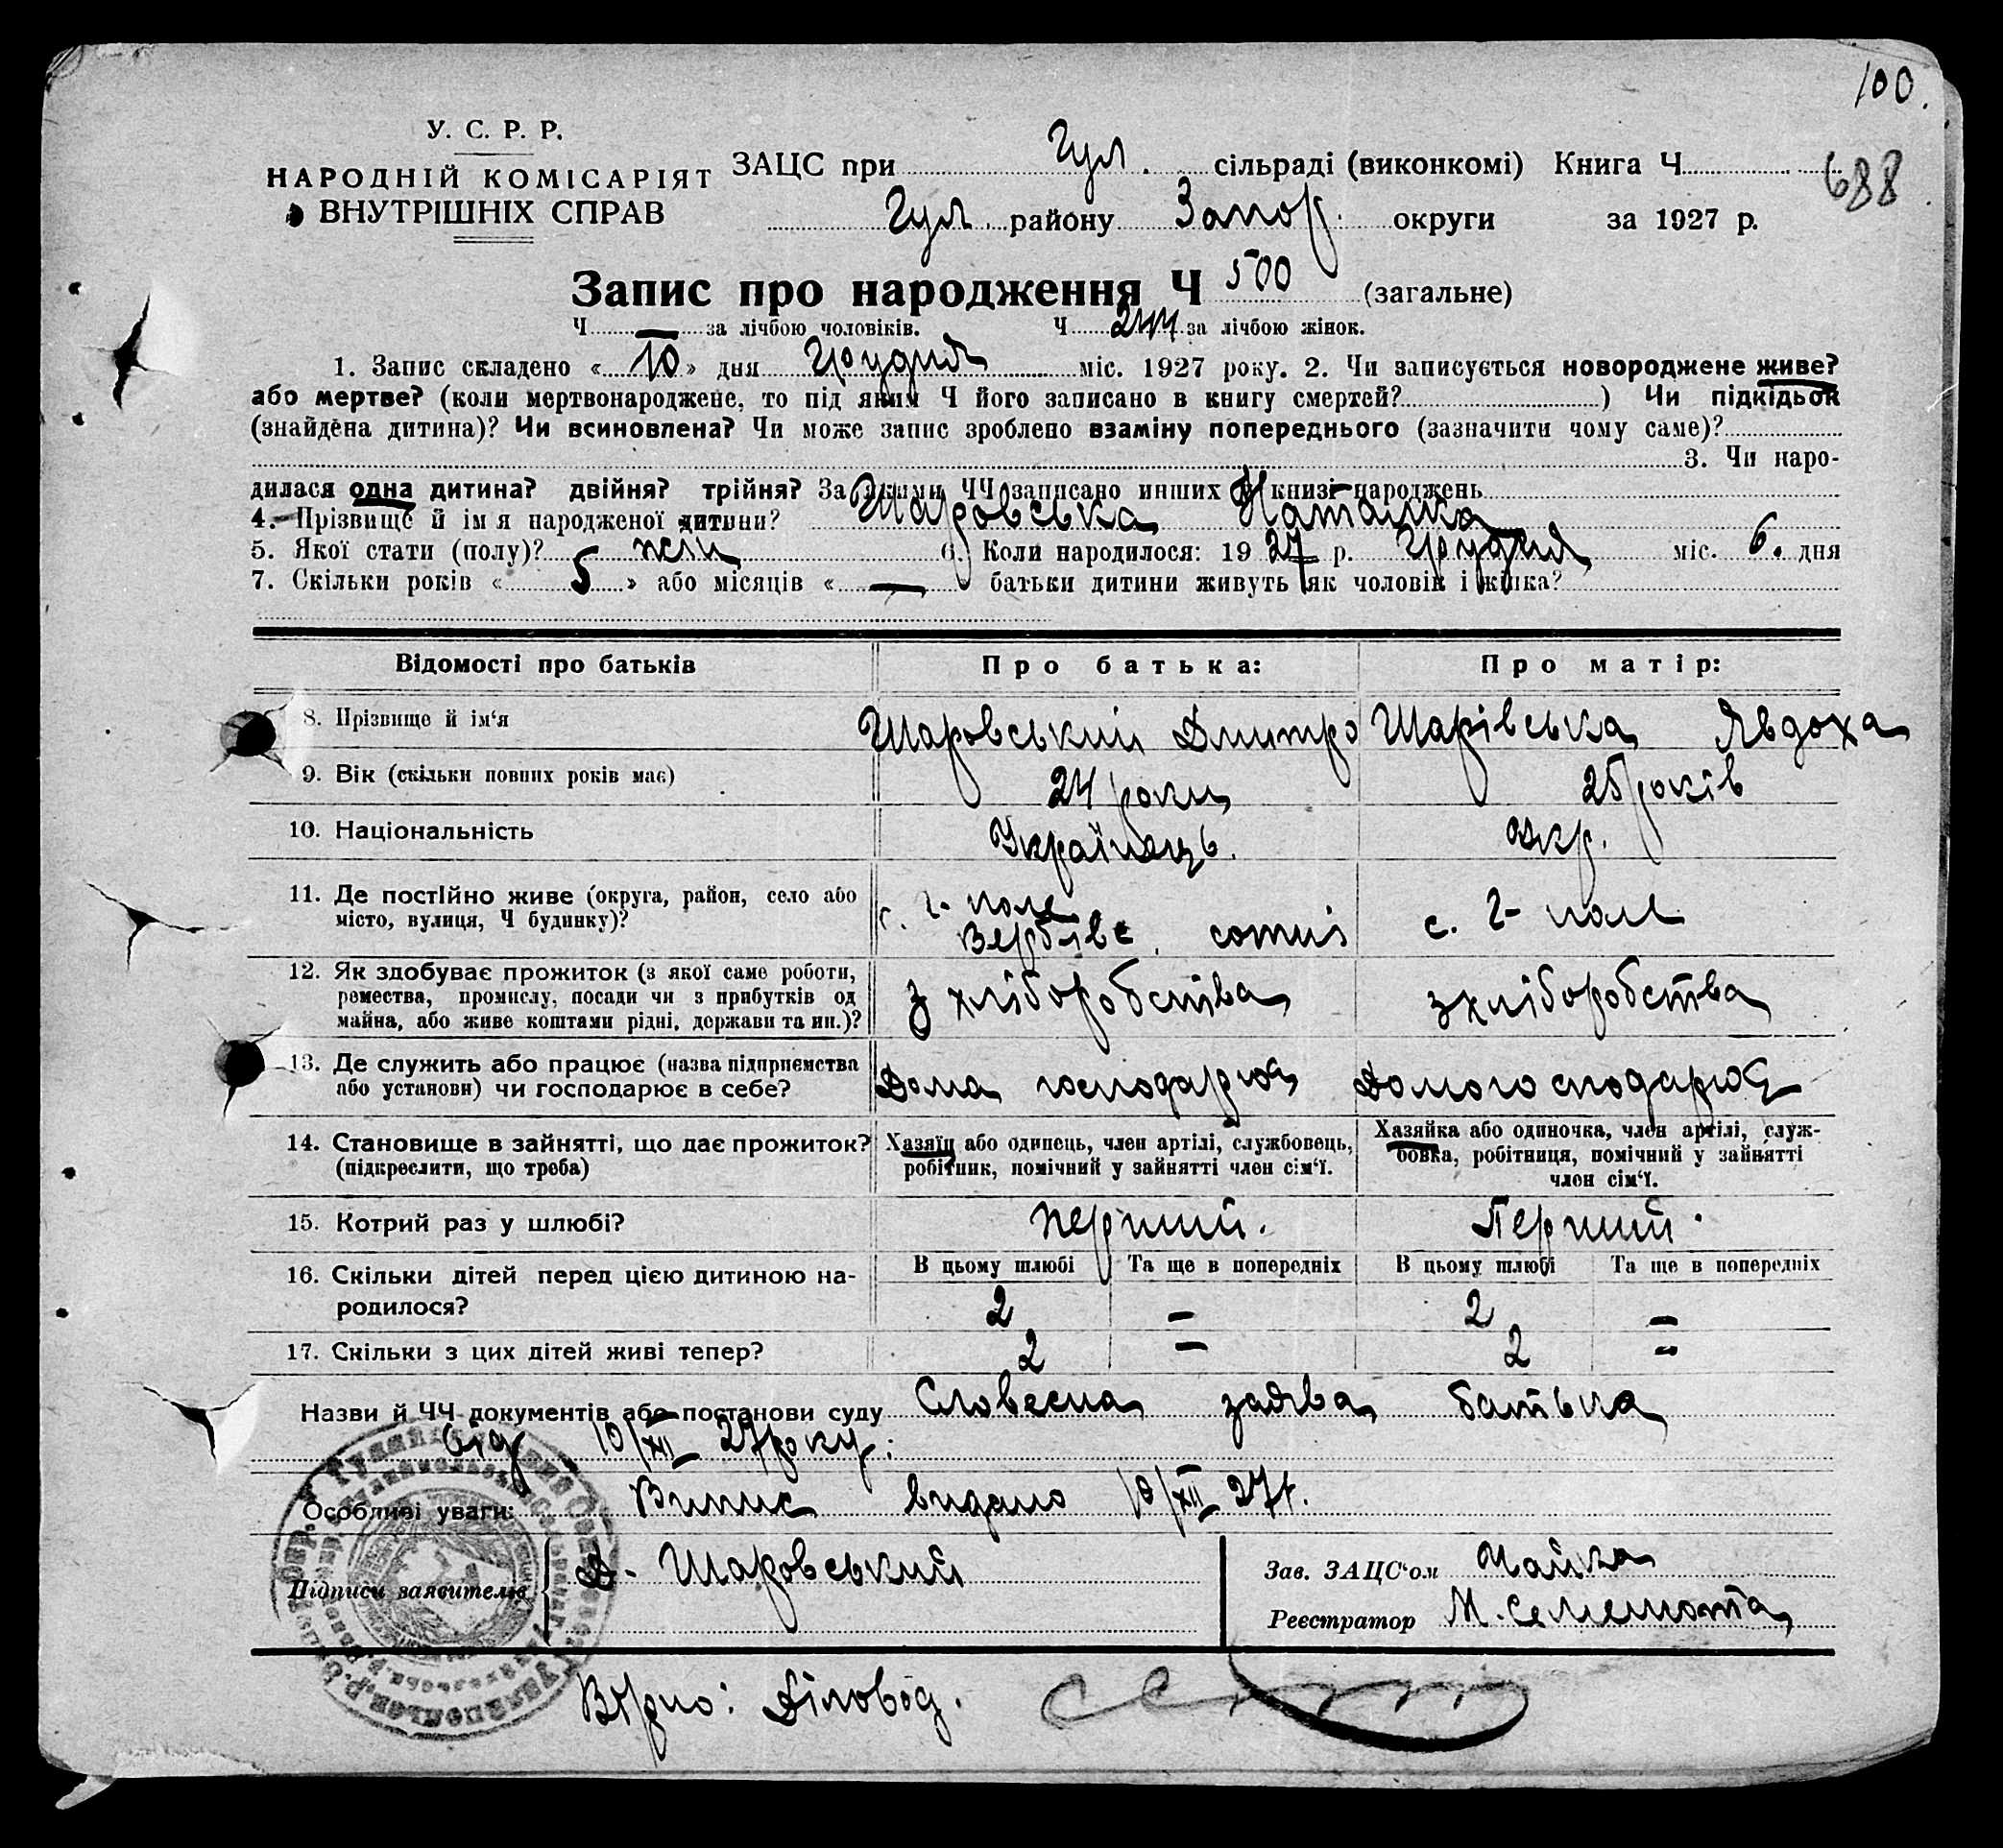 100.
688
У. С. Р. Р.
НАРОДНІЙ КОМІСАРІЯТ
ВНУТРІШНІХ СПРАВ
ЗАЦС при Гул. сільраді (виконкомі) Книга Ч
Гул. району Запор. округи за 1927 р.
Запис про народження Ч 500 (загальне)
Ч — за лічбою чоловіків. Ч 244 за лічбою жінок.
1. Запис складено « 10 » дня Грудня міс. 1927 року. 2. Чи записується новороджене живе?
або мертве? (коли мертвонароджене, то під яким Ч його записано в книгу смертей? ) Чи підкідьок
(знайдена дитина)? Чи всиновлена? Чи може запис зроблено взаміну попереднього (зазначити чому саме)?
3. Чи наро-
дилася одна дитина? двійня? трійня? За якими ЧЧ записано инших в книзі народжень
4. Прізвище й ім я народженої дитини? Шаровська Наталка
5. Якої стати (полу)? жін 6. Коли народилося: 19 27 р. Грудня міс. 6. дня
7. Скільки років « 5 » або місяців « — батьки дитини живуть як чоловік і жінка?
Відомості про батьків Про батька: Про матір:
8. Прізвище й ім'я Шаровський Дмитро Шарівська Явдоха
9. Вік (скільки повних років має) 24 роки 25 років
10. Національність Українець. Укр.
11. Де постійно живе (округа, район, село або
місто, вулиця, Ч будинку)?
с. Г- поле
Вербівс. сотні
с. Г- поле
12. Як здобуває прожиток (з якої саме роботи,
ремества, промислу, посади чи з прибутків од
майна, або живе коштами рідні, держави та ин.)?
з хліборобства з хліборобства
13. Де служить або працює (назва підприємства
або установи) чи господарює в себе?
Дома господарює Домогосподарює
14. Становище в зайнятті, що дає прожиток?
(підкреслити, що треба)
Хазяїн або одинець, член артілі, службовець,
робітник, помічний у зайнятті член сім'ї.
Хазяйка або одиночка, член артілі, служ-
бовка, робітниця, помічний у зайнятті
член сім'ї.
15. Котрий раз у шлюбі? перший. Перший.
16. Скільки дітей перед цією дитиною на-
родилося?
В цьому шлюбі Та ще в попередніх В цьому шлюбі Та ще в попередніх
2 – 2 –
17. Скільки з цих дітей живі тепер? 2 – 2 –
Назви й ЧЧ документів або постанови суду Словесна заява батька
від 10/XII 27 року.
Особливі уваги: Випис видано 10/XII 27 г.
Підписи заявителів Д. Шаровський
Зав. ЗАЦС'ом Чайка
Реєстратор М. Семенота
Вірно: Діловод.